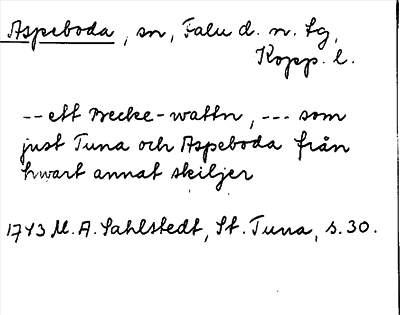 Aspeboda, sn, Falu d. n. tg,
Kopp. l.
-- ett Becke-wattn, --- som
just Tuna och Aspeboda från
hwart annat skiljer
1743 M. A. Sahlstedt, St. Tuna, s. 30.